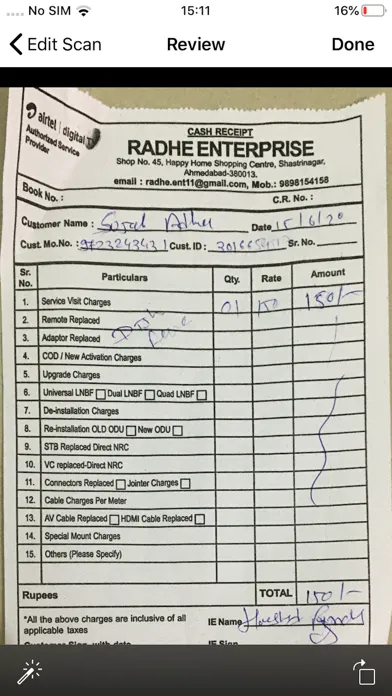 No SIM 15:11 16%
Edit Scan Review Done
airtel digital
Authorized Service
Provider
CASH RECEIPT
RADHE ENTERPRISE
Shop No. 45, Happy Home Shopping Centre, Shastrinagar,
Ahmedabad-380013.
email : radhe.ent11@gmail.com, Mob.: 9898154158
Book No. : C.R. No. :
Customer Name : Date 15/6/20
Cust. Mo.No. : Cust. ID : Sr. No.
Sr. No. Particulars Qty. Rate Amount
1. Service Visit Charges 01 150 150/-
2. Remote Replaced
3. Adaptor Replaced
4. COD / New Activation Charges
5. Upgrade Charges
6. Universal LNBF Dual LNBF Quad LNBF
7. De-installation Charges
8. Re-installation OLD ODU New ODU
9. STB Replaced Direct NRC
10. VC replaced-Direct NRC
11. Connectors Replaced Jointer Charges
12. Cable Charges Per Meter
13. AV Cable Replaced HDMI Cable Replaced
14. Special Mount Charges
15. Others (Please Specify)
Rupees TOTAL 150/-
*All the above charges are inclusive of all
applicable taxes
IE Name